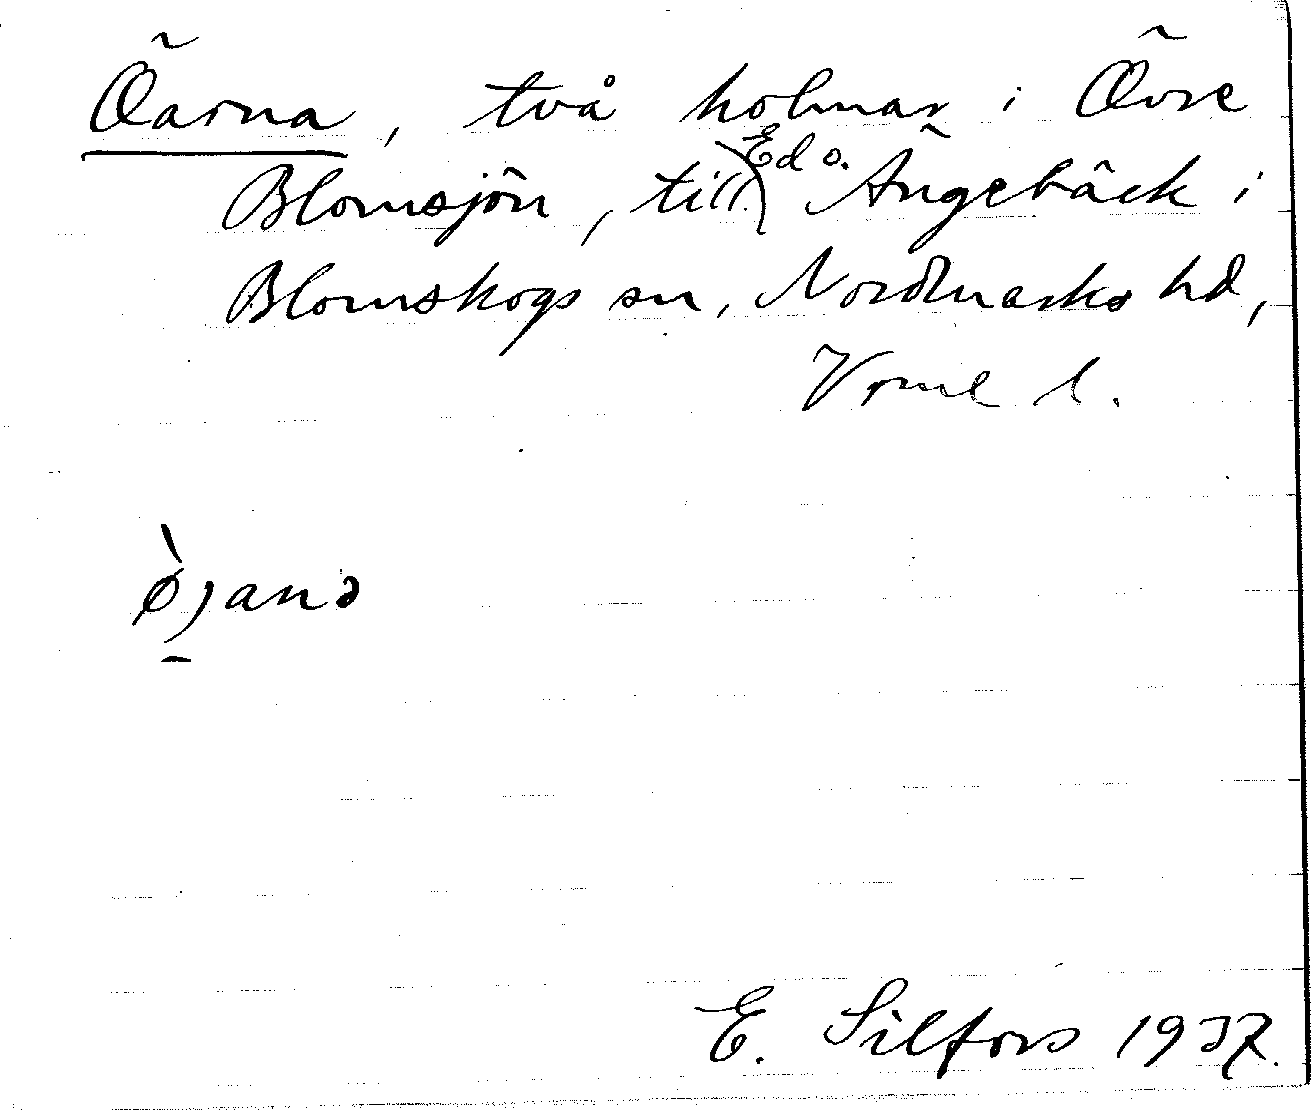 Öarna, två holmar i Övre
Blomsjön, till Ed o. Ängebäck i
Blomskogs sn, Nordmarks hd,
Vrml l.
ø̀janə
E. Silfors 1937.